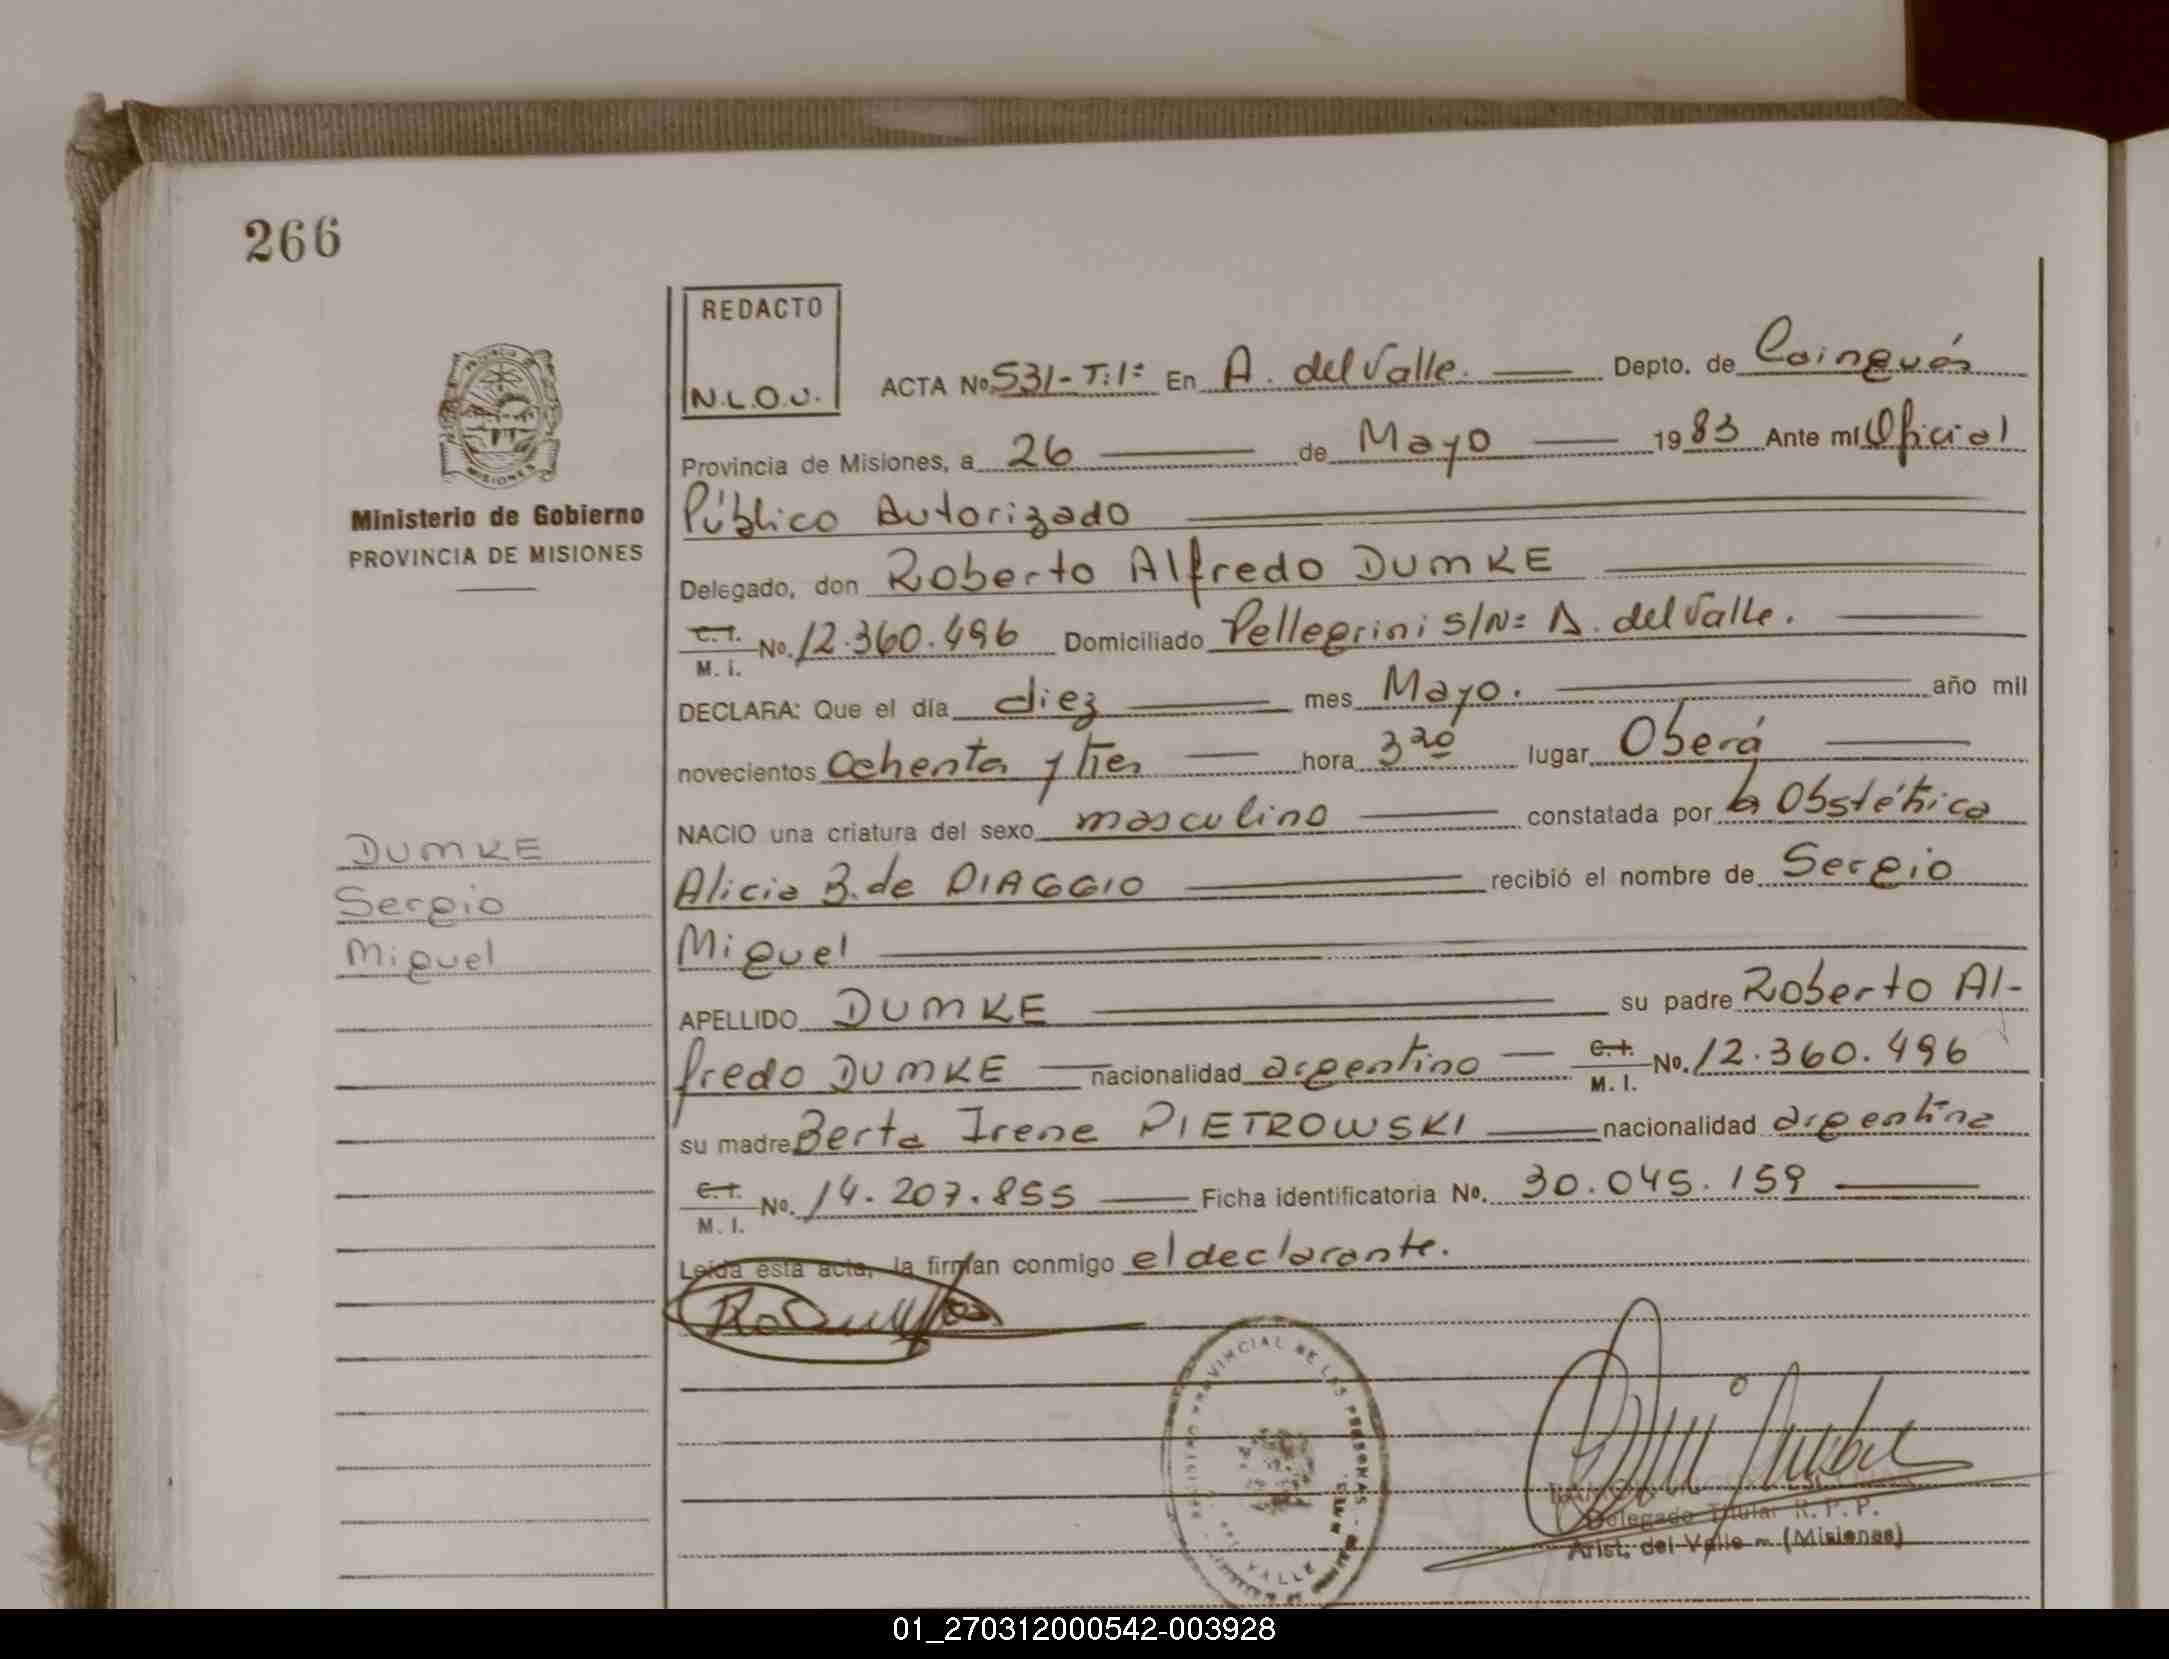 266
REDACTO
N.L.O.U.
ACTA No. 531-T:1º En A. del Valle. Depto. de Cainguás
Provincia de Misiones, a 26 de Mayo 1983 Ante mí Oficial
Público Autorizado
Delegado, don Roberto Alfredo DUMKE
C.I. M.I. No. 12.360.496 Domiciliado Pellegrini S/Nº A. del Valle.
DECLARA: Que el día diez mes Mayo. año mil
novecientos ochenta y tres hora 3 20 lugar Oberá
NACIO una criatura del sexo masculino constatada por la Obstétrica
Alicia B. de DIAGGIO recibió el nombre de Sergio
Miguel
APELLIDO DUMKE su padre Roberto Al-
fredo DUMKE nacionalidad argentino C.I. M.I. No. 12.360.496
su madre Berta Irene PIETROWSKI nacionalidad argentina
C.I. M.I. No. 14.207.855 Ficha identificatoria No. 30.045.159
Leída esta acta, la firman conmigo el declarante.
PROVINCIA DE MISIONES
Ministerio de Gobierno
PROVINCIA DE MISIONES
DUMKE
Sergio
Miguel
PROVINCIAL DE LAS PERSONAS
VALLE
Delegado Titular R. P. P.
Arist. del Valle - (Misiones)
01_270312000542-003928